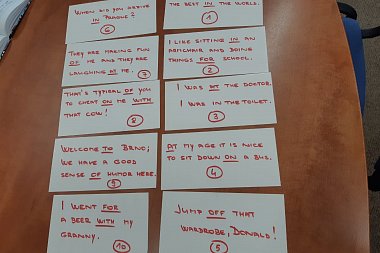 WHEN DID YOU ARRIVE
IN PRAGUE?
6
THE BEST IN THE WORLD.
1
THEY ARE MAKING FUN
OF ME AND THEY ARE
LAUGHING AT ME.
7
I LIKE SITTING IN AN
ARMCHAIR AND DOING
THINGS FOR SCHOOL.
2
THAT'S TYPICAL OF YOU
TO CHEAT ON ME WITH
THAT COW!
8
I WAS AT THE DOCTOR.
I WAS IN THE TOILET.
3
WELCOME TO BRNO;
WE HAVE A GOOD
SENSE OF HUMOR HERE.
9
AT MY AGE IT IS NICE
TO SIT DOWN ON A BUS.
4
I WENT FOR
A BEER WITH MY
GRANNY.
10
JUMP OFF THAT
WARDROBE, DONALD!
5